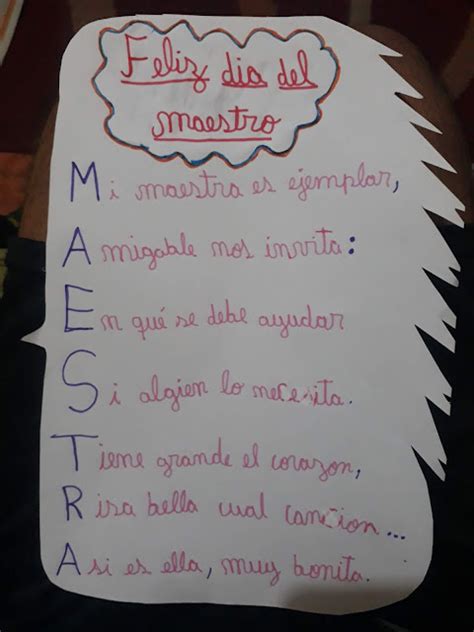 Feliz dia del
maestro
Mi maestra es ejemplar,
Amigable nos invita:
En qué se debe ayudar
Si algien lo necesita.
Tiene grande el corazon,
Risa bella cual cancion...
Asi es ella, muy bonita.